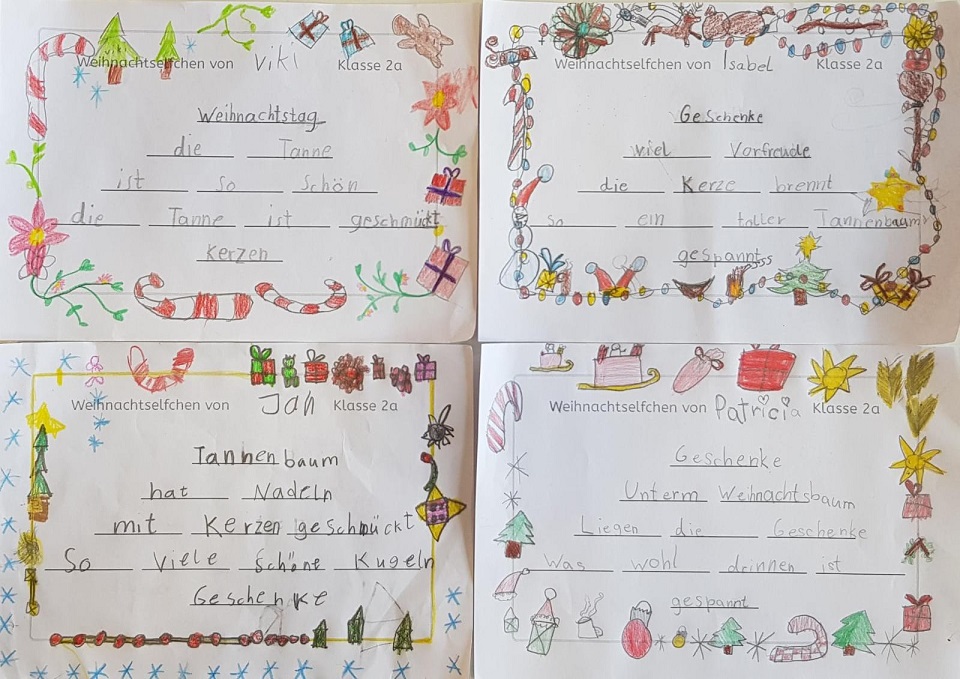 Weihnachtselfchen von Viki Klasse 2a
Weihnachtstag
die Tanne
ist so schön
die Tanne ist geschmückt
Kerzen
Weihnachtselfchen von Isabel Klasse 2a
Geschenke
viel Vorfreude
die Kerze brennt
so ein toller Tannenbaum
gespannt
Weihnachtselfchen von Jan Klasse 2a
Tannenbaum
hat Nadeln
mit Kerzen geschmückt
So viele schöne Kugeln
Geschenke
Weihnachtselfchen von Patricia Klasse 2a
Geschenke
Unterm Weihnachtsbaum
Liegen die Geschenke
Was wohl drinnen ist
gespannt